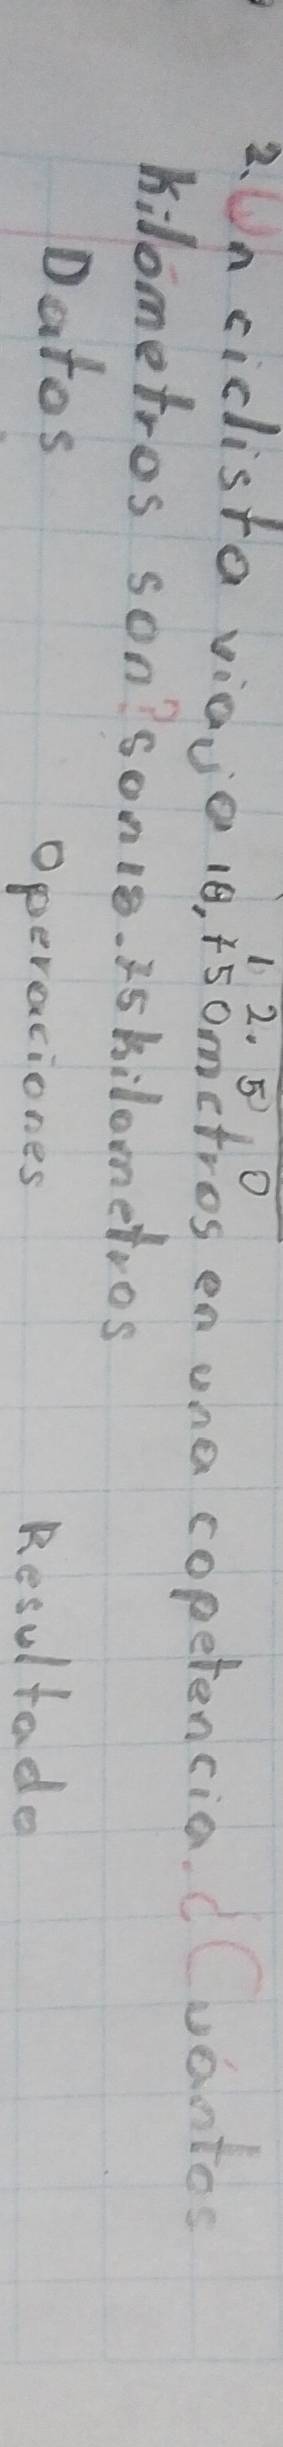 1 2. 5 0
2. Un ciclista viaja 18,750 metros en una copetencia. ¿Cuántos
kilómetros son? Son 18.75 kilometros
Datos Operaciones Resultado